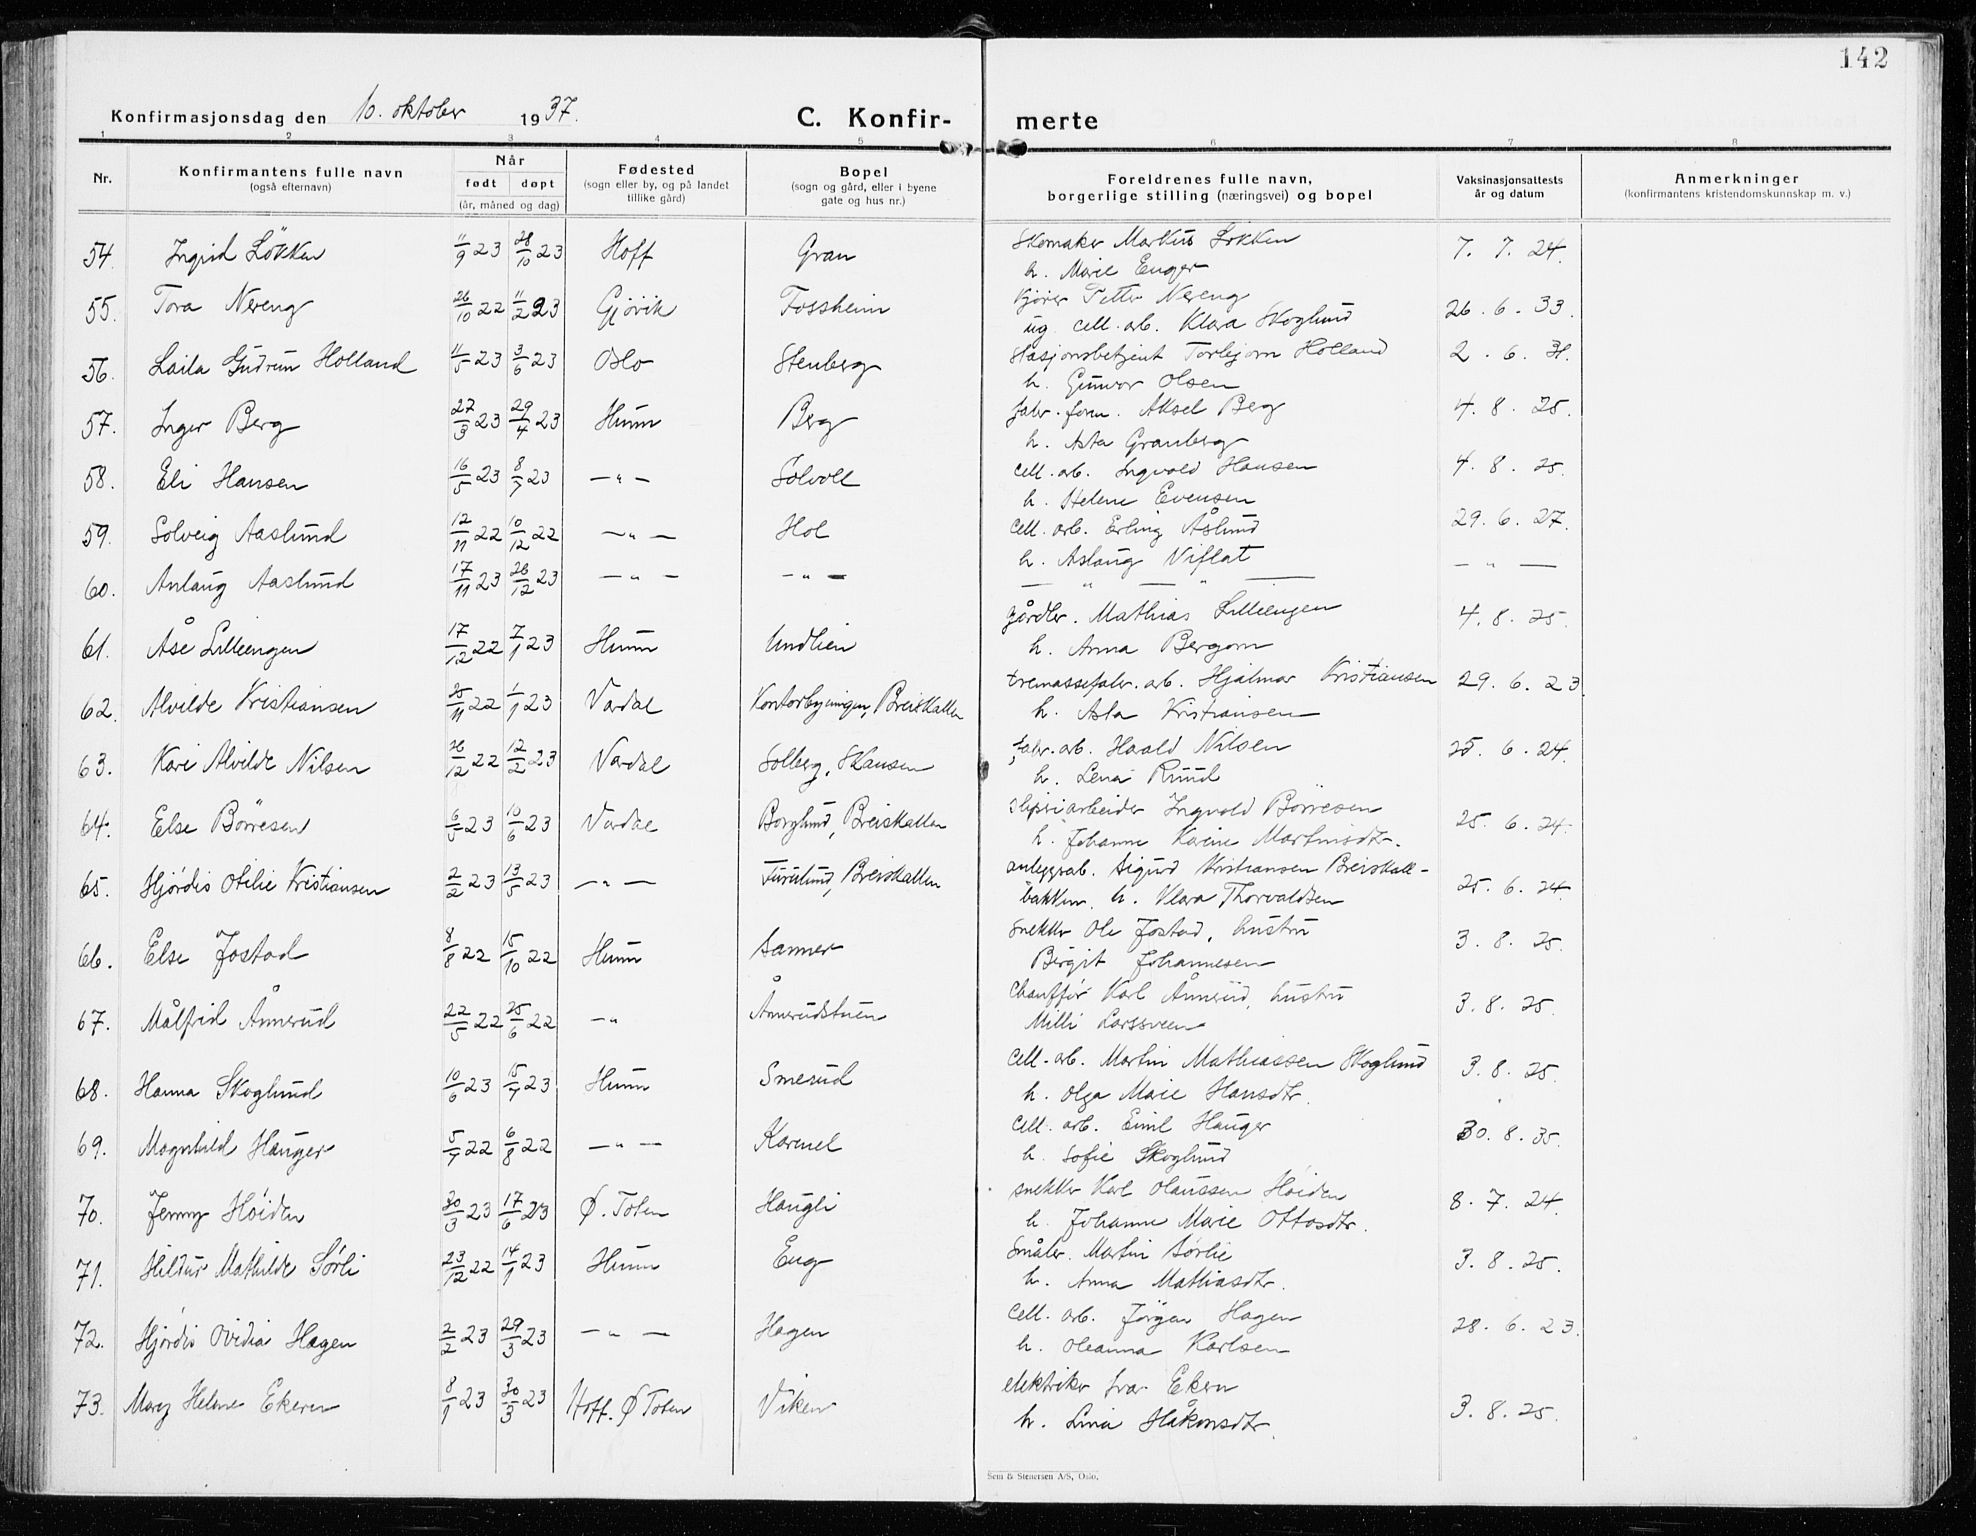 142
Konfirmasjonsdag den 10. oktober 1937.
C. Konfir- merte
1 2 3 4 5 6 7 8
Nr.
Konfirmantens fulle navn
(også efternavn)
Når
født døpt
(år, måned og dag)
Fødested
(sogn eller by, og på landet
tillike gård)
Bopel
(sogn og gård, eller i byene
gate og hus nr.)
Foreldrenes fulle navn,
borgerlige stilling (næringsvei) og bopel
Vaksinasjonsattests
år og datum
Anmerkninger
(konfirmantens kristendomskunnskap m. v.)
54. Ingrid Løkken 11/9 23 28/10 23 Hoff Gran Skomaker Markus Løkken 7. 7. 24.
h. Marie Enger
55. Tora Nereng 26/10 22 11/2 23 Gjøvik Fossheim Kjører Petter Nereng 26. 6. 33.
ug. cell. arb. Klara Skoglund
56. Laila Gudrun Holland 11/5 23 3/6 23 Oslo Stenberg Stasjonsbetjent Torbjørn Holland 2. 6. 31.
h. Gunvor Olsen
57. Inger Berg 27/3 23 29/4 23 Hunn Berg fabr. form. Aksel Berg 4. 8. 25.
h. Asta Granberg
58. Eli Hansen 16/5 23 8/7 23 — " — Solvoll cell. arb. Ingvald Hansen 4. 8. 25.
h. Helene Evensen
59. Solveig Aaslund 12/11 22 10/12 22 — " — Hol Cell. arb. Erling Åslund 29. 6. 27.
h. Aslaug Viflat
60. Anlaug Aaslund 17/11 23 26/12 23 — " — — " — — " — " — — " —
61. Åse Lilleengen 17/12 22 7/1 23 Hunn Undlien gårdbr. Mathias Lilleengen 4. 8. 25.
h. Anna Bergom
62. Alvilde Kristiansen 25/11 22 1/1 23 Vardal Kontorbygningen, Breiskallen tremassefabr. arb. Hjalmar Kristiansen 29. 6. 23.
h. Asta Kristiansen
63. Kari Alvilde Nilsen 26/12 22 12/2 23 Vardal Solberg, Skansen fabr. arb. Harald Nilsen 25. 6. 24.
h. Lena Ruud
64. Else Börresen 6/5 23 10/6 23 Vardal Borglund, Breiskallen sliperiarbeider Ingvald Börresen 25. 6. 24.
h. Johanne Karine Martinsdtr.
65. Hjördis Otilie Kristiansen 2/2 23 13/5 23 — " — Furulund, Breiskallen anleggsarb. Sigurd Kristiansen Breiskall-
bakken. h. Klara Thorvaldsen 25. 6. 24.
66. Else Jostad 8/8 22 15/10 22 Hunn Sanner snekker Ole Jostad, hustru 3. 8. 25.
Birgit Johannesen
67. Målfrid Ånnerud 22/5 22 25/6 22 — " Ånnerudstuen Chauffør Karl Ånnerud, hustru 3. 8. 25.
Milli Larssveen
68. Hanna Skoglund 10/6 23 15/7 23 Hunn Smesud Cell. arb. Martin Mathiassen Skoglund 3. 8. 25.
h. Olga Marie Hansdtr.
69. Magnhild Hauger 5/7 22 6/8 22 — " — Karmel Cell. arb. Emil Hauger 30. 8. 35.
h. Sofie Skoglund
70. Jenny Høiden 30/3 23 17/6 23 Ø. Toten Haugli snekker Karl Olaussen Høiden 8. 7. 24.
h. Johanne Marie Ottosdtr.
71. Hildur Mathilde Sørli 23/12 22 14/1 23 Hunn Eng Småbr. Martin Sørlie 3. 8. 25.
h. Anna Mathiasdtr.
72. Hjørdis Ovidia Hagen 2/2 23 29/3 23 — " — Hagen Cell. arb. Jørgen Hagen 28. 6. 23.
h. Oleanna Karlsen
73. Mary Helene Ekeren 8/1 23 30/3 23 Hoff. Ø Toten Viken elektriker Ivar Ekern 3. 8. 25.
h. Lina Håkonsdtr.
Sem & Stenersen A/S, Oslo.